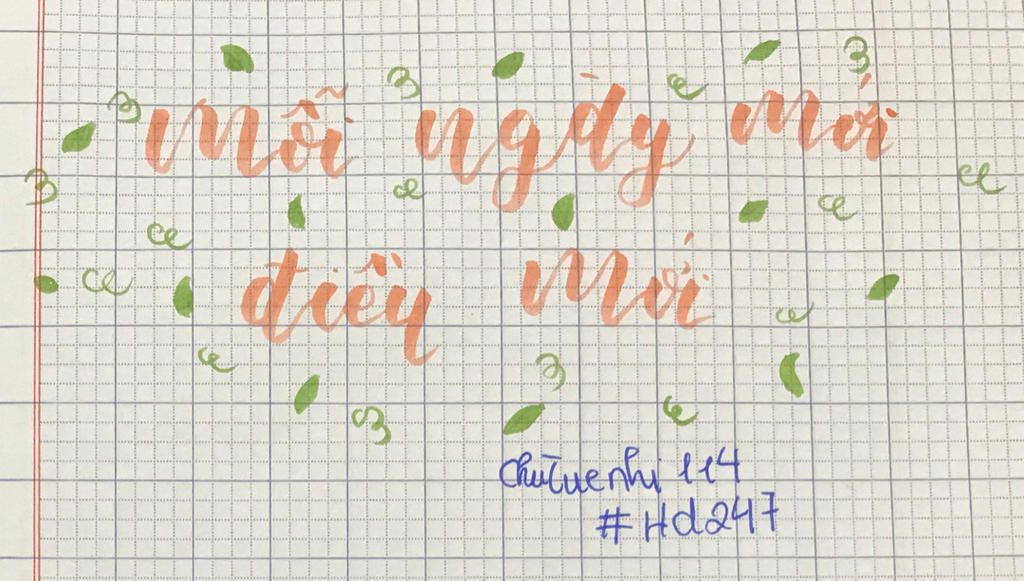 mỗi ngày mới
điều mới
chutuenhi 114
#Hd247